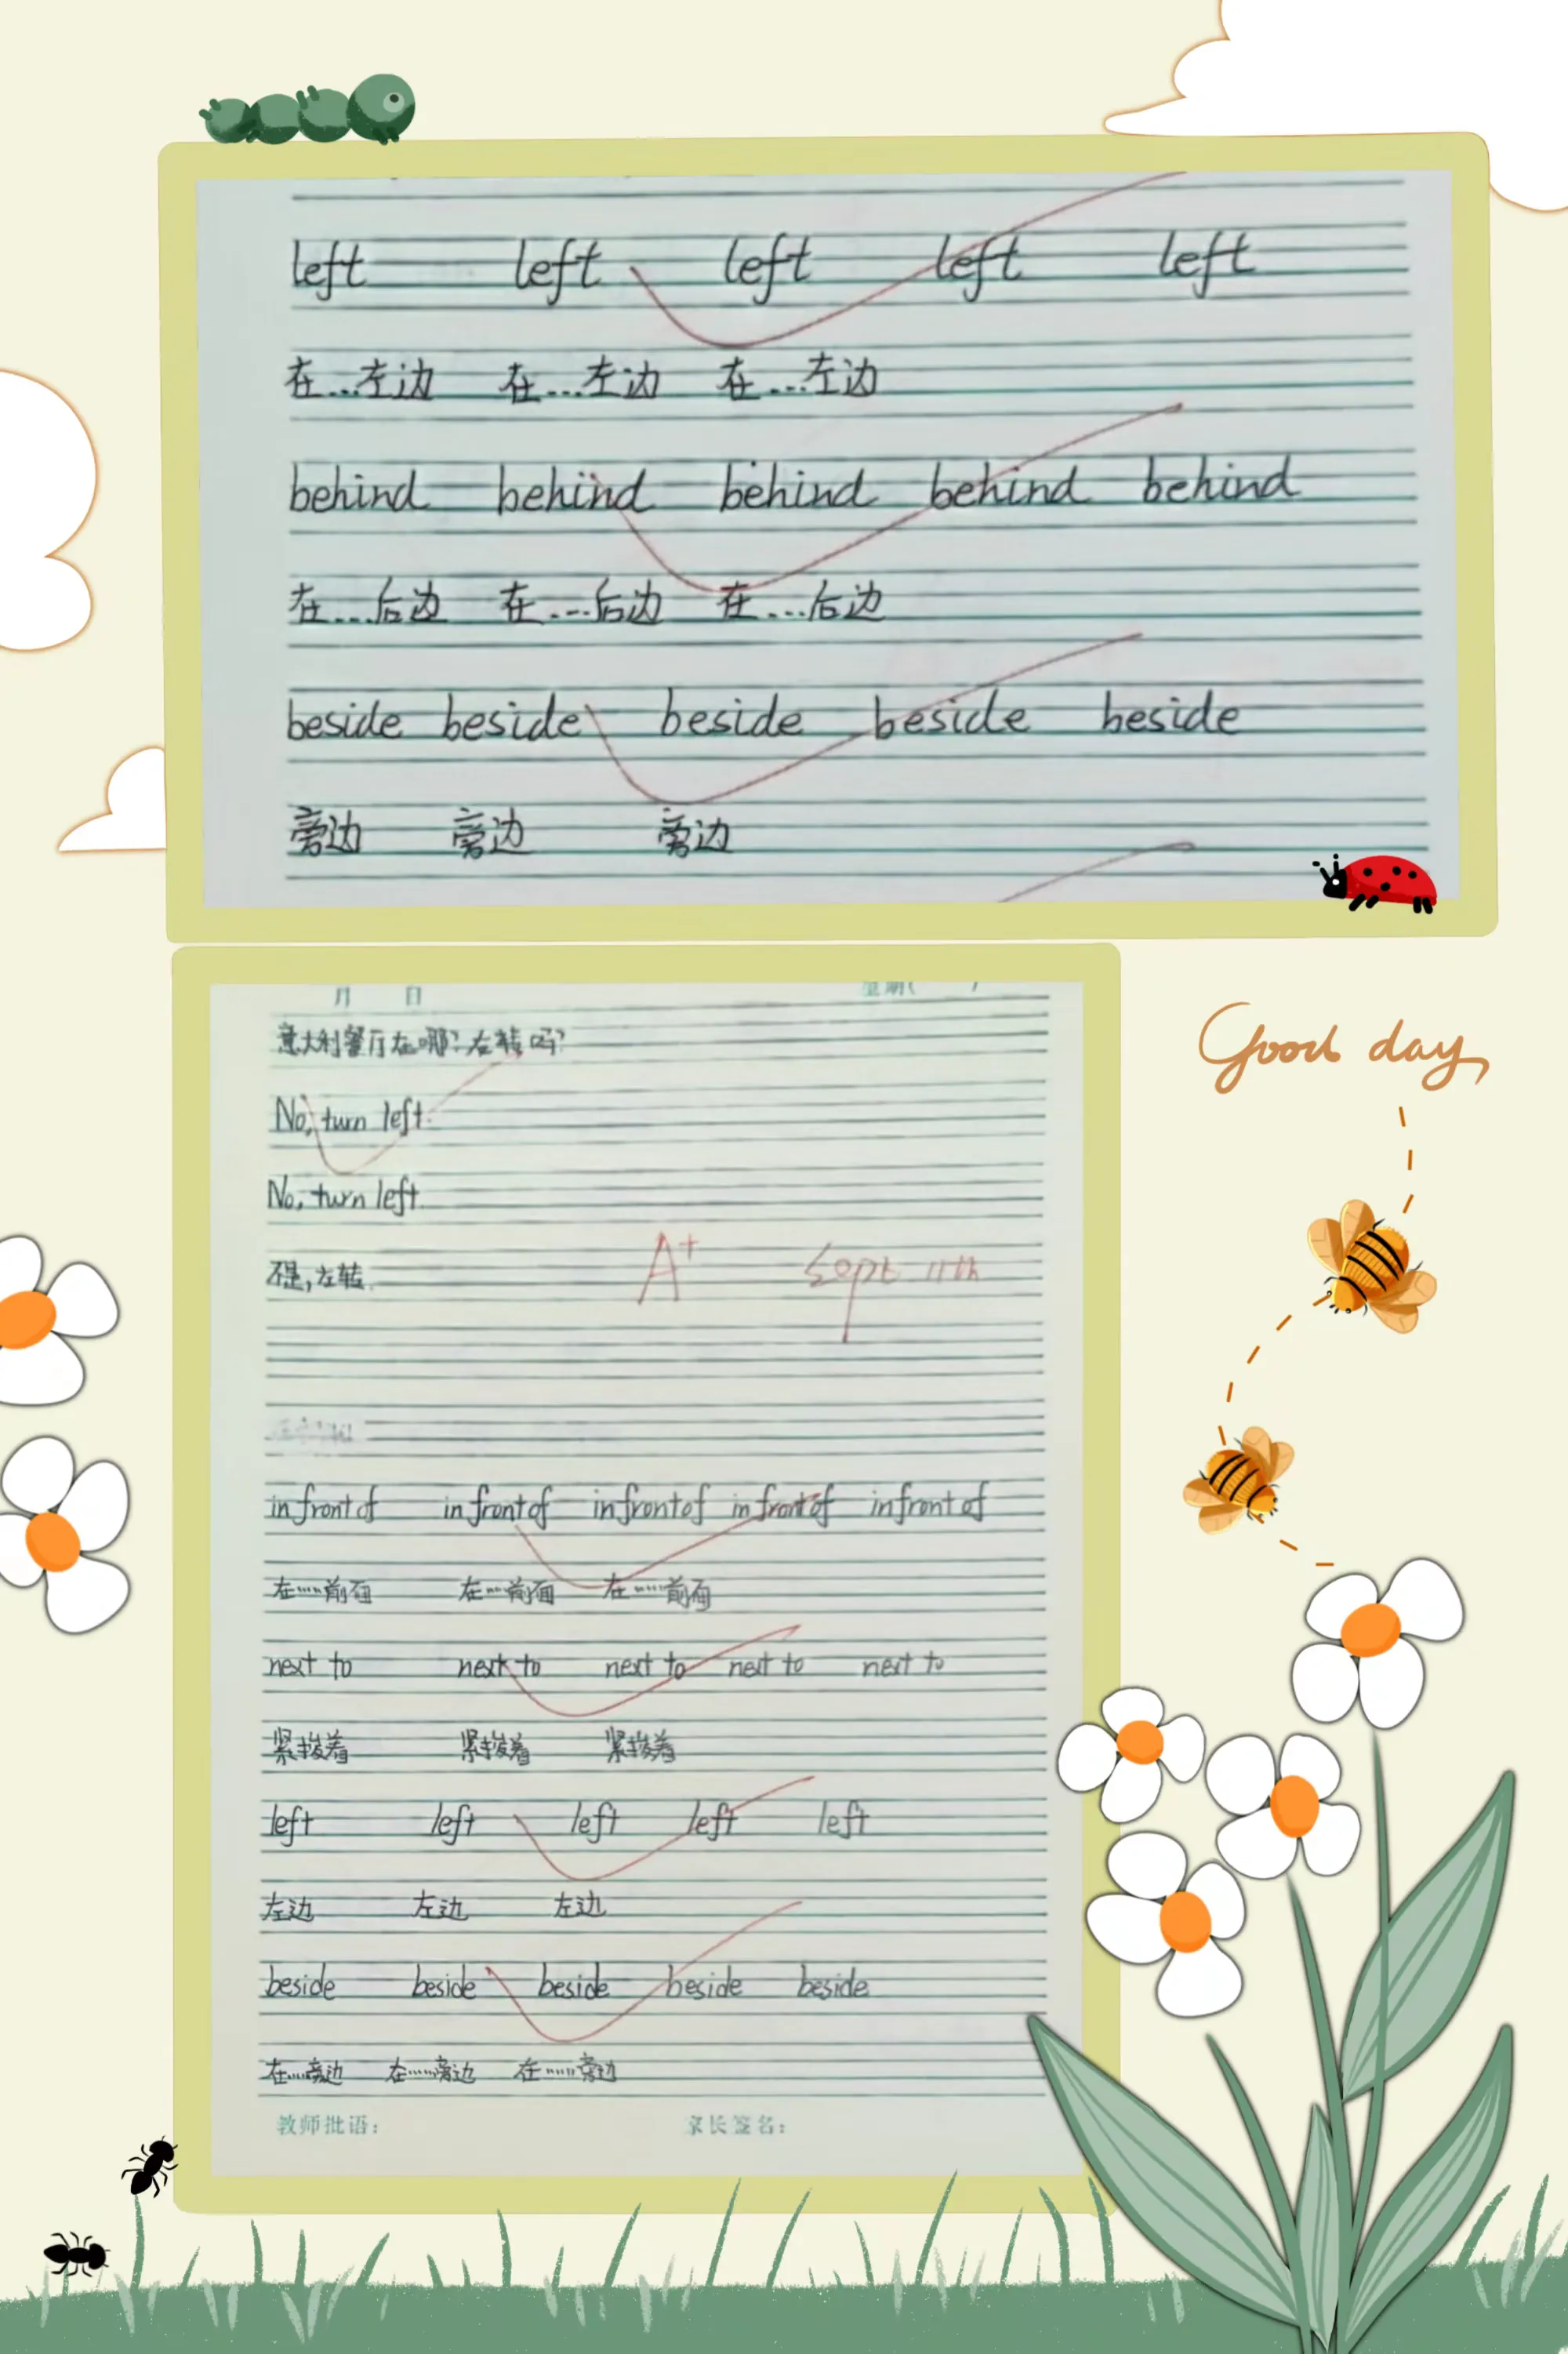 left left left left left
在...左边 在...左边 在...左边
behind behind behind behind behind
在...后边 在...后边 在...后边
beside beside beside beside beside
旁边 旁边 旁边
月 日 星期( )
意大利餐厅在哪?右转吗?
No, turn left.
No, turn left.
不是,左转.
A+ Sept. 11th
in front of in front of in front of in front of in front of
在......前面 在......前面 在......前面
next to next to next to next to next to
紧挨着 紧挨着 紧挨着
left left left left left
左边 左边 左边
beside beside beside beside beside
在......旁边 在......旁边 在......旁边
教师批语: 家长签名:
Good day